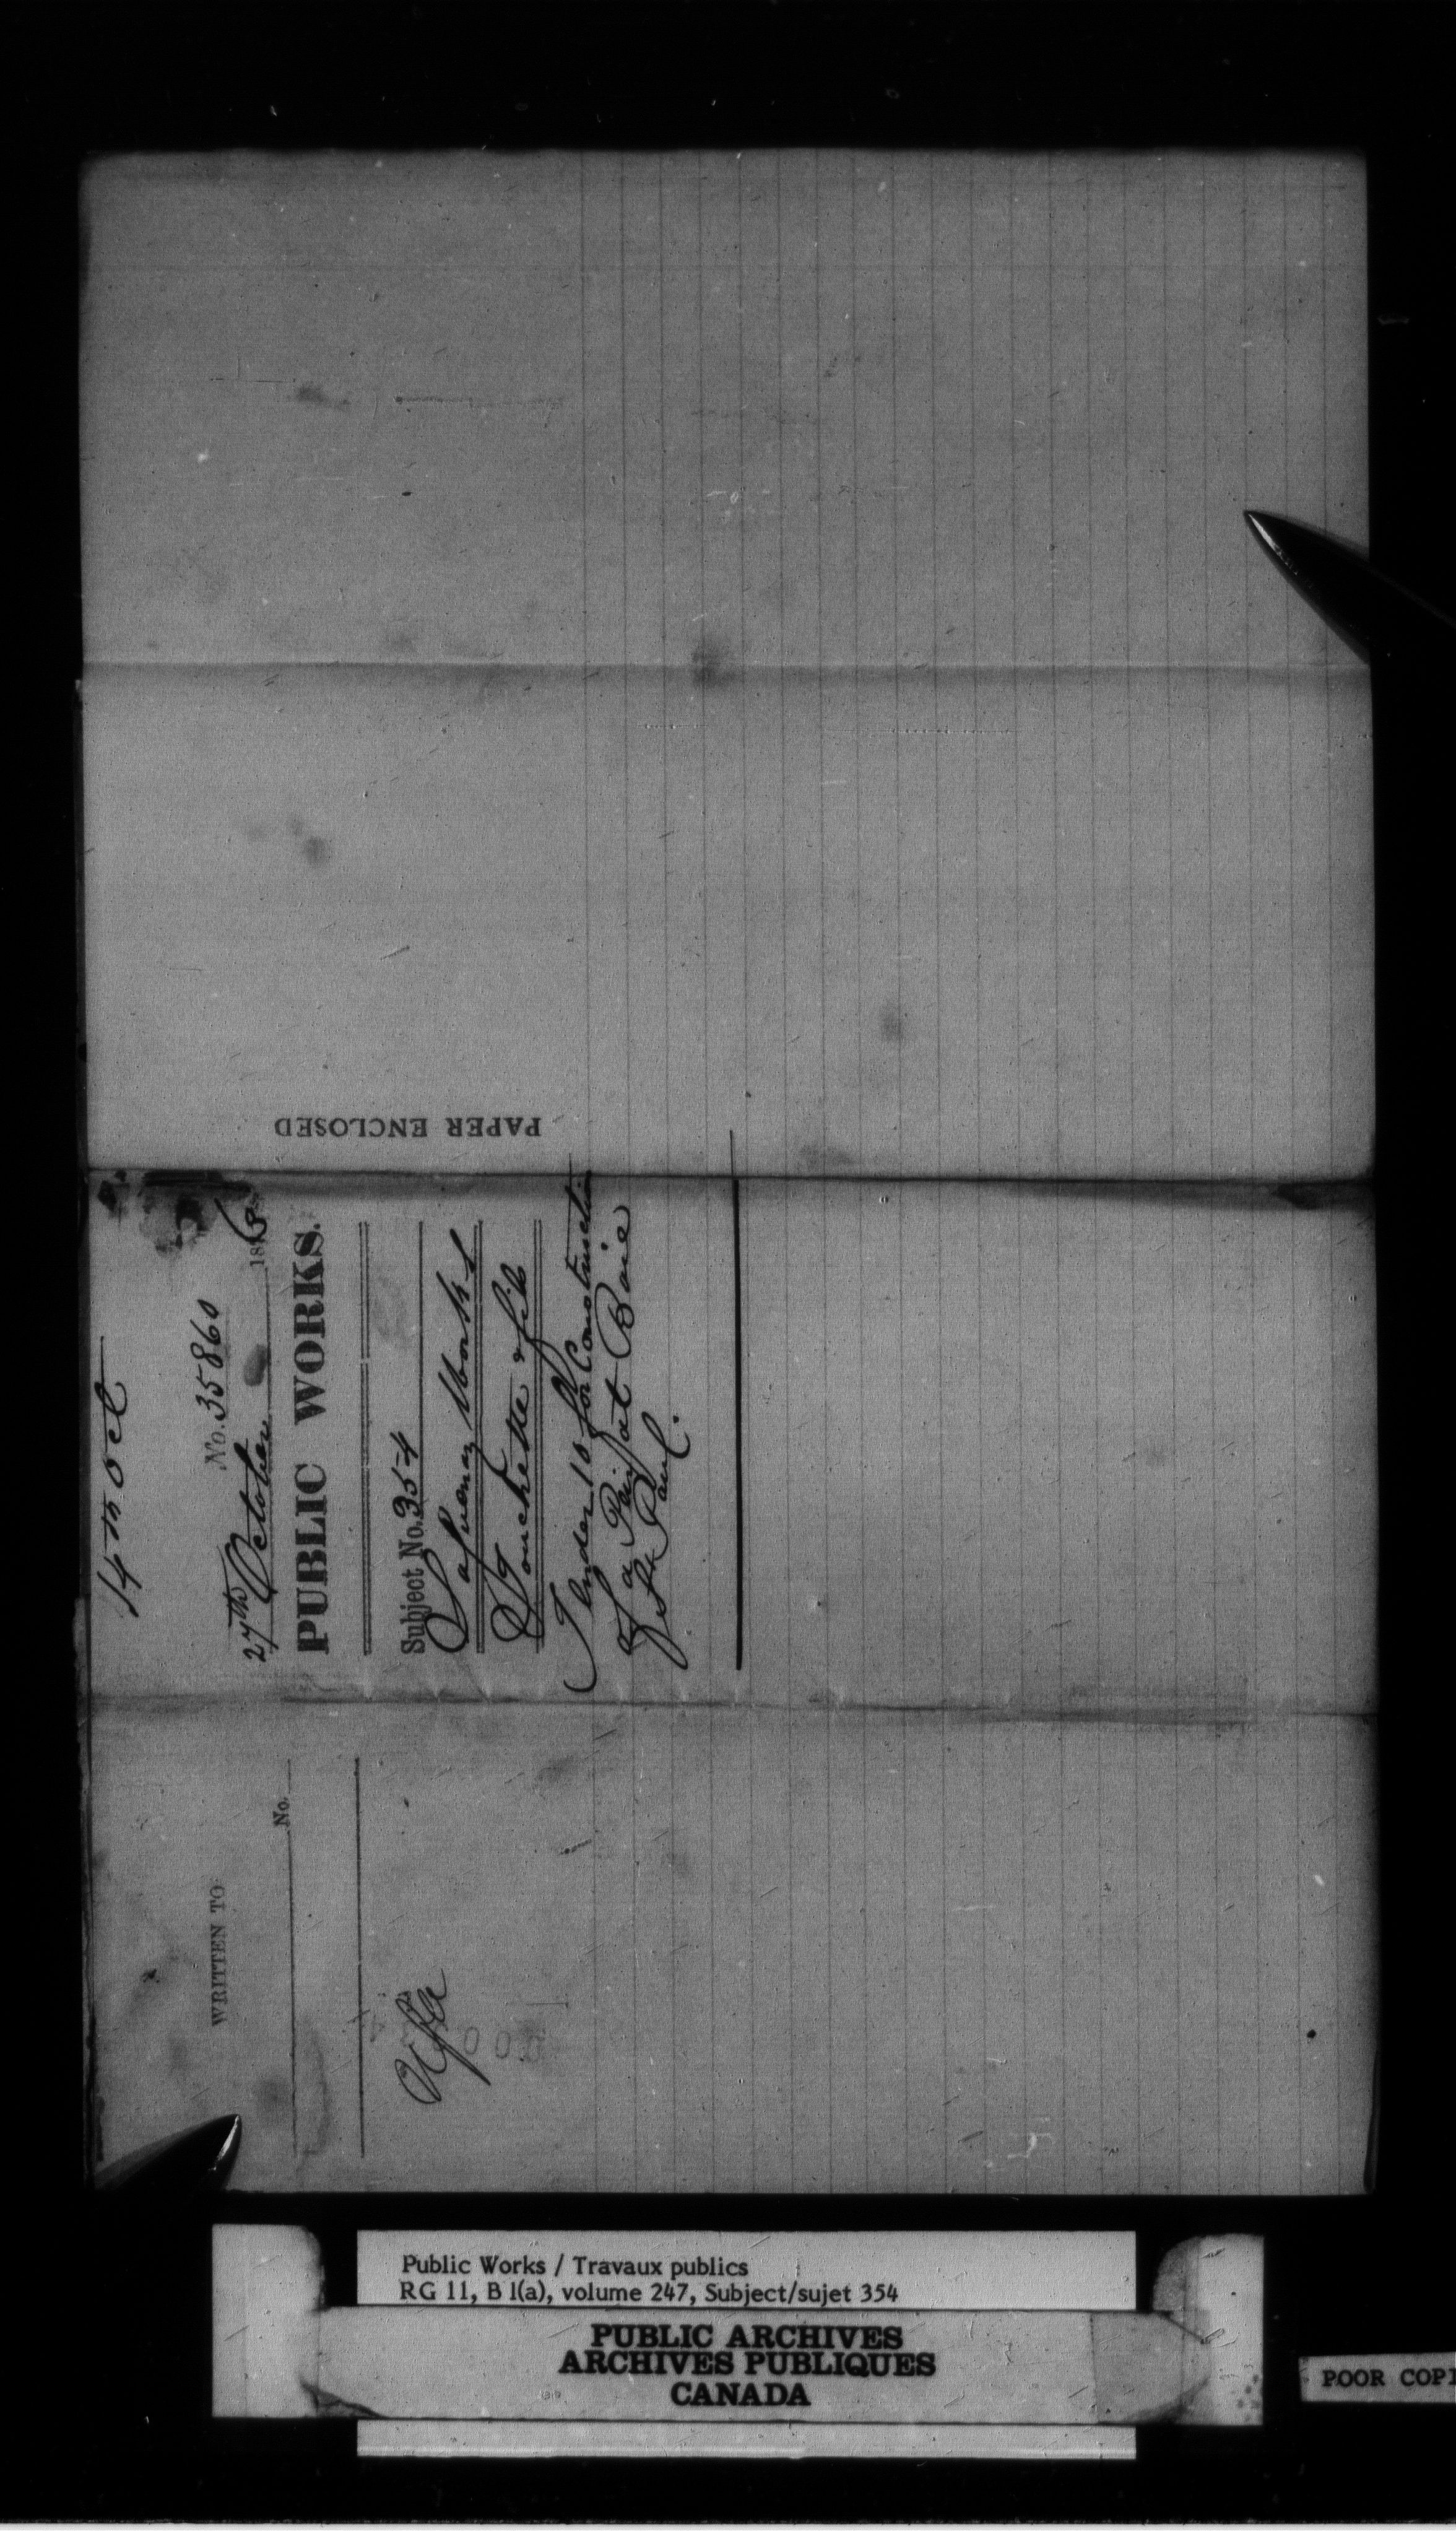 PAPER ENCLOSED
14th Oct
No. 35860
27th October 186
PUBLIC WORKS.
Subject No. 354
Saguenay Works
Touchette & fils
Tenders for Construction
of a Pier at Baie
St. Paul.
WRITTEN TO
No.
Public Works / Travaux publics
RG 11, B 1(a), volume 247, Subject/sujet 354
PUBLIC ARCHIVES
ARCHIVES PUBLIQUES
CANADA
POOR COP